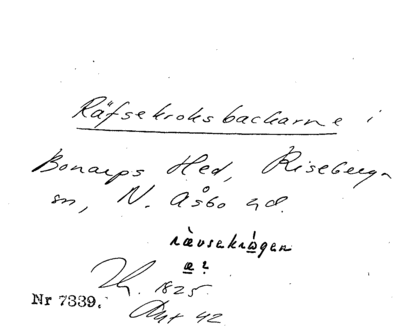 Räfsekroksbackarne i
Bonarps Hed, Riseberga
sn, N. Åsbo hd.
rävsekrågen
a?
1825.
Nr 7339.
42